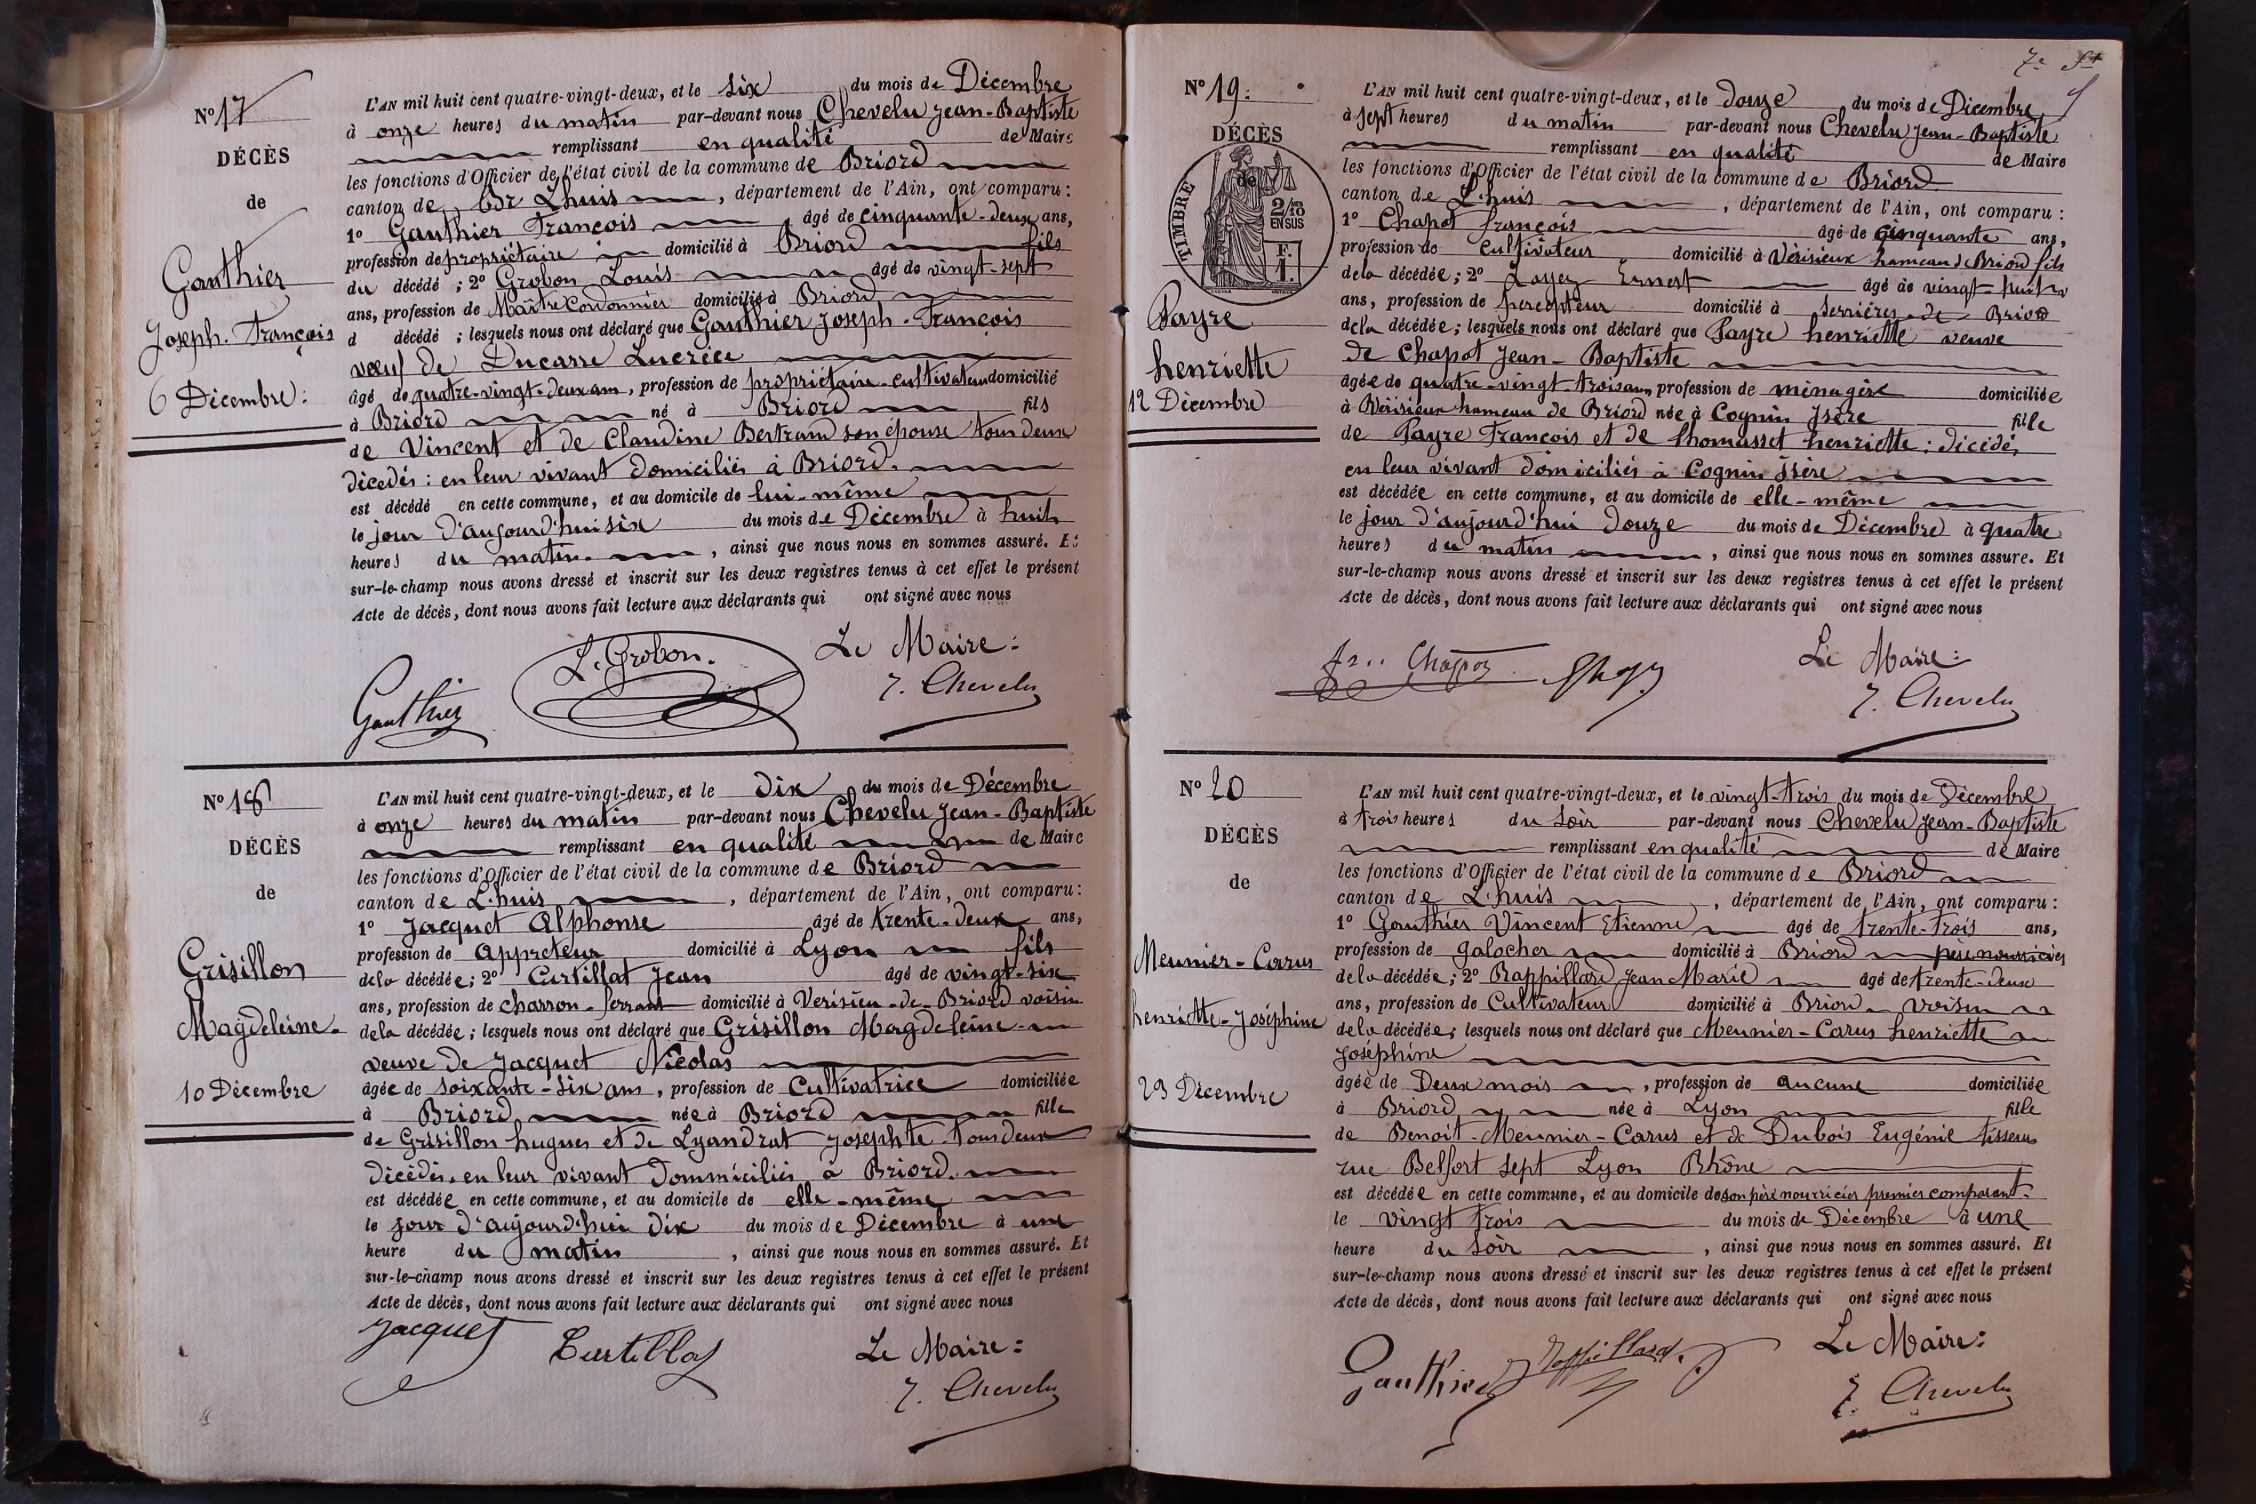 N° 17
DÉCÈS
de
Gauthier
Joseph-François
6 Décembre:
L'AN mil huit cent quatre-vingt-deux, et le six du mois de Décembre
à onze heures du matin par-devant nous Chevelu Jean-Baptiste
remplissant en qualité de Maire
les fonctions d'Officier de l'état civil de la commune de Briord
canton de Lhuis, département de l'Ain, ont comparu:
1° Gauthier François âgé de cinquante-deux ans,
profession de propriétaire domicilié à Briord fils
du décédé; 2° Grobon Louis âgé de vingt-sept
ans, profession de Maître Cordonnier domicilié à Briord
d décédé; lesquels nous ont déclaré que Gauthier Joseph-François
veuf de Ducarre Lucrèce
âgé de quatre-vingt-deux ans, profession de propriétaire-cultivateur domicilié
à Briord né à Briord fils
de Vincent et de Claudine Bertrand son épouse tous deux
décédés: en leur vivant domiciliés à Briord.
est décédé en cette commune, et au domicile de lui-même
le jour d'aujourd'hui six du mois de Décembre à huit
heures du matin, ainsi que nous nous en sommes assuré. Et
sur-le-champ nous avons dressé et inscrit sur les deux registres tenus à cet effet le présent
Acte de décès, dont nous avons fait lecture aux déclarants qui ont signé avec nous
Gauthier
L. Grobon.
Le Maire:
J. Chevelu
N° 18
DÉCÈS
de
Grisillon
Magdeleine
10 Décembre
L'AN mil huit cent quatre-vingt-deux, et le dix du mois de Décembre
à onze heures du matin par-devant nous Chevelu Jean-Baptiste
remplissant en qualité de Maire
les fonctions d'Officier de l'état civil de la commune de Briord
canton de L'huis, département de l'Ain, ont comparu:
1° Jacquet Alphonse âgé de trente-deux ans,
profession de appreteur domicilié à Lyon fils
de la décédée; 2° Curtillat Jean âgé de vingt-six
ans, profession de charron-ferrant domicilié à Verisieu-de-Briord voisin
de la décédée; lesquels nous ont déclaré que Grisillon Magdeleine
veuve de Jacquet Nicolas
âgée de soixante-six ans, profession de Cultivatrice domiciliée
à Briord née à Briord fille
de Grisillon hugues et de Lyandrat Josephte tous deux
décédés, en leur vivant dommiciliés à Briord.
est décédée en cette commune, et au domicile de elle-même
le jour d'aujourd'hui dix du mois de Décembre à une
heure du matin, ainsi que nous nous en sommes assuré. Et
sur-le-champ nous avons dressé et inscrit sur les deux registres tenus à cet effet le présent
Acte de décès, dont nous avons fait lecture aux déclarants qui ont signé avec nous
Jacquet
Curtillat
Le Maire:
J. Chevelu
N° 19:
DÉCÈS
de
TIMBRE
2/10
EN SUS
F.
1
Payre
henriette
12 Décembre
L'AN mil huit cent quatre-vingt-deux, et le douze du mois de Décembre
à sept heures du matin par-devant nous Chevelu Jean-Baptiste
remplissant en qualité de Maire
les fonctions d'Officier de l'état civil de la commune de Briord
canton de L'huis, département de l'Ain, ont comparu:
1° Chapot françois âgé de cinquante ans,
profession de cultivateur domicilié à Vérisieux hameau de Briord fils
de la décédée; 2° Ernest âgé de vingt-huit
ans, profession de percepteur domicilié à Serrières-de-Briord
de la décédée; lesquels nous ont déclaré que Payre henriette veuve
de Chapot Jean-Baptiste
âgée de quatre-vingt-trois ans, profession de ménagère domiciliée
à Vérisieux hameau de Briord née à Cognin Isère fille
de Payre François et de Thomasset henriette: décédés,
en leur vivant domiciliés à Cognin Isère
est décédée en cette commune, et au domicile de elle-même
le jour d'aujourd'hui douze du mois de Décembre à quatre
heures du matin, ainsi que nous nous en sommes assuré. Et
sur-le-champ nous avons dressé et inscrit sur les deux registres tenus à cet effet le présent
Acte de décès, dont nous avons fait lecture aux déclarants qui ont signé avec nous
Chapot
Le Maire:
J. Chevelu
N° 20
DÉCÈS
de
Meunier-Carus
henriette-Joséphine
23 Décembre
L'AN mil huit cent quatre-vingt-deux, et le vingt-trois du mois de Décembre
à trois heures du soir par-devant nous Chevelu Jean-Baptiste
remplissant en qualité de Maire
les fonctions d'Officier de l'état civil de la commune de Briord
canton de L'huis, département de l'Ain, ont comparu:
1° Gauthier Vincent Etienne âgé de trente-trois ans,
profession de galocher domicilié à Briord père nourricier
de la décédée; 2° Rappillard Jean Marie âgé de trente-deux
ans, profession de Cultivateur domicilié à Briord voisin
de la décédée; lesquels nous ont déclaré que Meunier-Carus henriette
Joséphine
âgée de Deux mois, profession de aucune domiciliée
à Briord née à Lyon fille
de Benoit-Meunier-Carus et de Dubois Eugénie tisseurs
rue Belfort sept Lyon Rhône
est décédée en cette commune, et au domicile de son père nourricier premier comparant.
le vingt trois du mois de Décembre à une
heure du soir, ainsi que nous nous en sommes assuré. Et
sur-le-champ nous avons dressé et inscrit sur les deux registres tenus à cet effet le présent
Acte de décès, dont nous avons fait lecture aux déclarants qui ont signé avec nous
Gauthier
Rappillard
Le Maire:
J. Chevelu